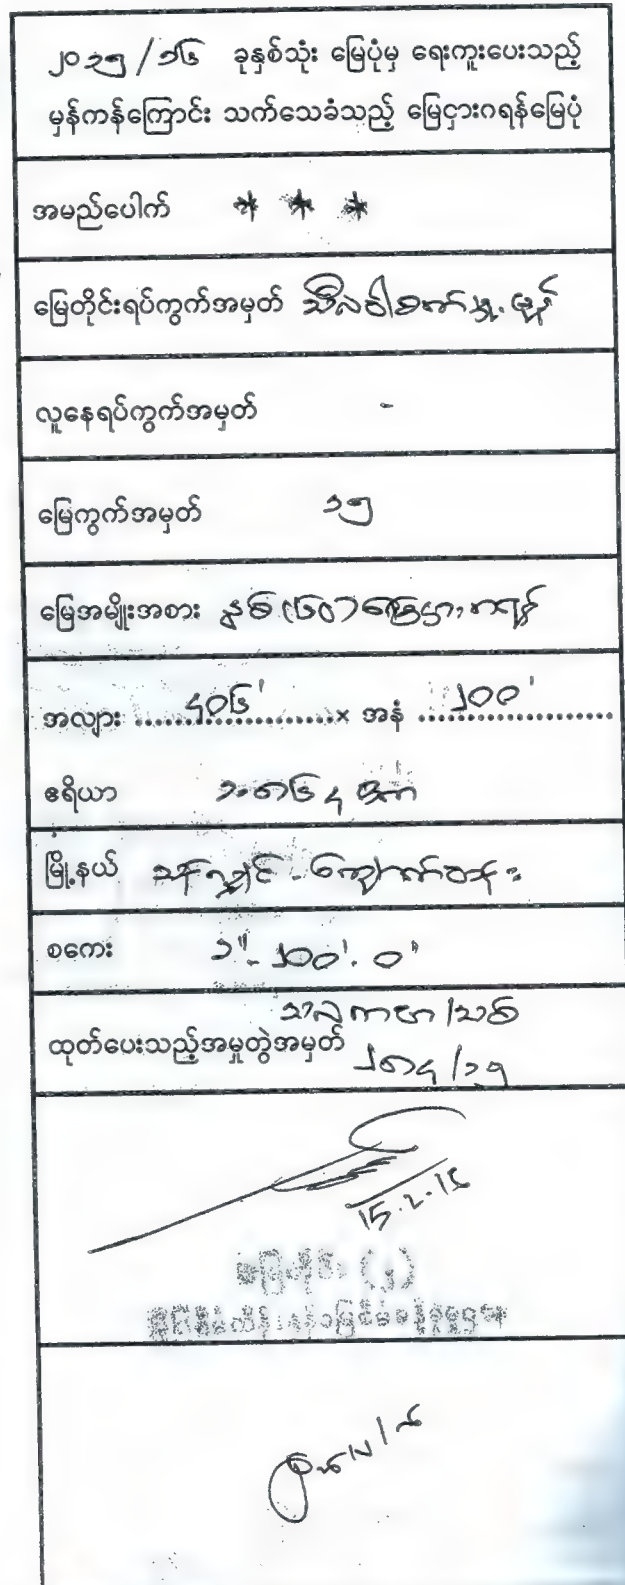 ၂၀၁၅/၁၆ ခုနှစ်သုံး မြေပုံမှ ရေးကူးပေးသည့်
မှန်ကန်ကြောင်း သက်သေခံသည့် မြေငှားဂရန်မြေပုံ
အမည်ပေါက် * * *
မြေတိုင်းရပ်ကွက်အမှတ် သီလဝါစက်မှုဇုန်
လူနေရပ်ကွက်အမှတ် -
မြေကွက်အမှတ် ၁၅
မြေအမျိုးအစား နှစ်(၆၀)မြေငှားဂရန်
အလျား ၄၀၆' × အနံ ၂၀၀'
ဧရိယာ ၁.၈၆၄ ဧက
မြို့နယ် သန်လျှင် - ကျောက်တန်း
စကေး ၁"- ၂၀၀'. ၀"
ထုတ်ပေးသည့်အမှုတွဲအမှတ် /သစ်
၂၈၄/၁၅
15.2.16